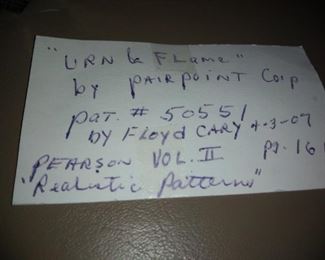 "URN & FLAME"
by PAIRPOINT Corp
pat. # 50551
by FLOYD CARY 4-3-07
PEARSON VOL. II pg. 161
"Realistic Patterns"